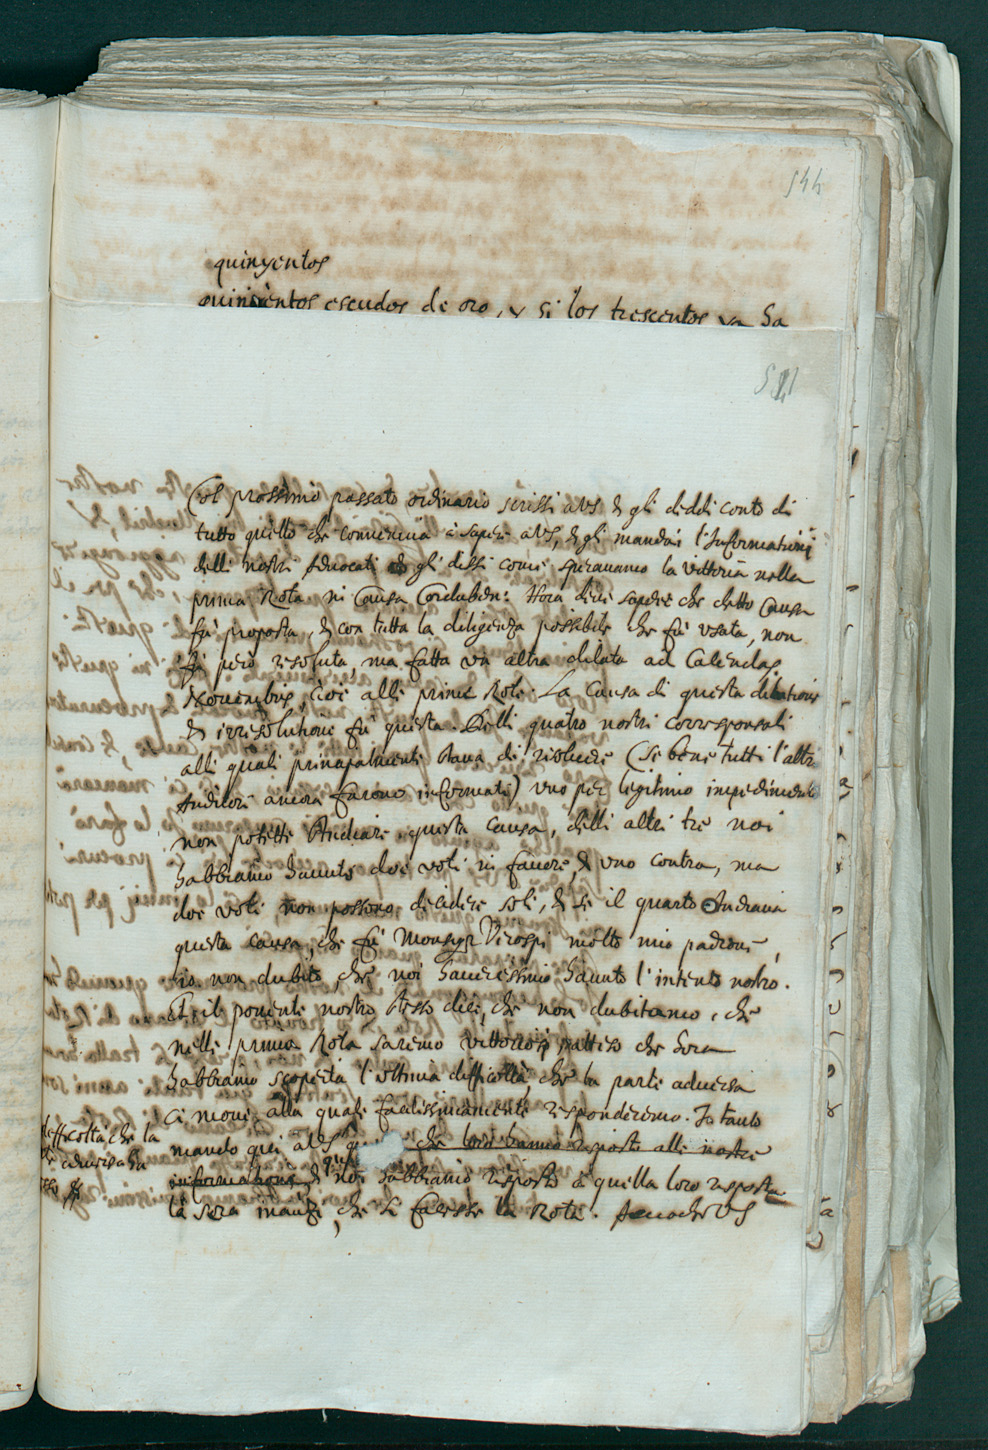 544
quinyentos
quinientos escudos de oro, y si los trescentos ya ha
541
Col prossimo passato ordinario scrissi a VS et gli diedi conto di
tutto quello che conveniva à sapere a VS, et gli mandai l'Informationi
delli nostri Advocati et gli dissi come speravamo la vittoria nella
prima Rota in Causa Corduben: Hora deve sapere che detta Causa
fù proposta, et con tutta la diligenza possibile che fù usata, non
fù però resoluta, ma fatta un altra dilata ad Calendas
Novembris, cioè alle prime Rote. La Causa di questa dilatione
et irresolutione fù questa. Delli quatro nostri Corresponsali
alli quali principalmente stava di risolvere (se bene tutti l'altri
Auditori ancora furono informati) uno per legitimo impedimento
non potette Audiare questa causa, delli altri tre noi
habbiamo havuto doi voti in favore, et uno contra, ma
doi voti non possono decidere soli, et se il quarto Audiava
questa causa, che fù Monsigr Verospi molto mio padrone,
io non dubito, che noi haveressimo havuto l'intento nostro.
Et il ponente nostro stesso dice, che non dubitamo, che
nella prima Rota saremo vittoriosi, atteso che hora
habbiamo scoperta l'ultima difficoltà, che la parte adversa
ci move, alla quale facilissimamente responderemo. In tanto
mando qui a VS che loro hanno risposto alle nostre
difficoltà che la
adversa ha
informationi, et quel noi habbiamo risposto à quella loro risposta
la sera inanzi, che si facesse la Rota. Acciochè VS